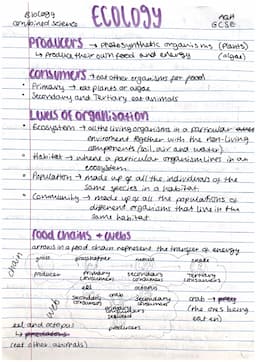 Biology
combined science
ECOLOGY
AQA
GCSE
Producers → photosynthetic organisms (plants)
↳ produce their own food and energy (algae)
Consumers → eat other organisms for food
• Primary → eat plants or algae
• Secondary and Tertiary eat animals
Levels of Organisation
• Ecosystem → all the living organisms in a particular
environment together with the non-living
components (soil, air and water)
• Habitat → where a particular organism lives in an
ecosystem.
• Population → made up of all the individuals of the
same species in a habitat
• Community → made up of all the populations of
different organisms that live in the
same habitat
food chains + webs
arrows in a food chain represent the transfer of energy
chain
grass grasshopper snake
producer primary consumers secondary consumers tertiary consumers
web
eel octopus
secondary consumers crab secondary consumers
crab → prey
primary consumers
(the ones being
eaten)
eel and octopus
producers
↳ predators
(eat other animals)